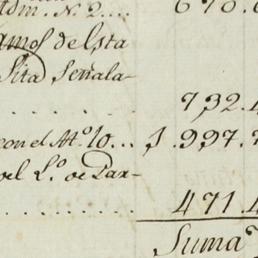 Adm. N. 2.... 670.
amos de esta
Sita Señala-
........ 732.4
con el No. 10... 1.997.
el L.o de Par-
........ 471.4
Suma